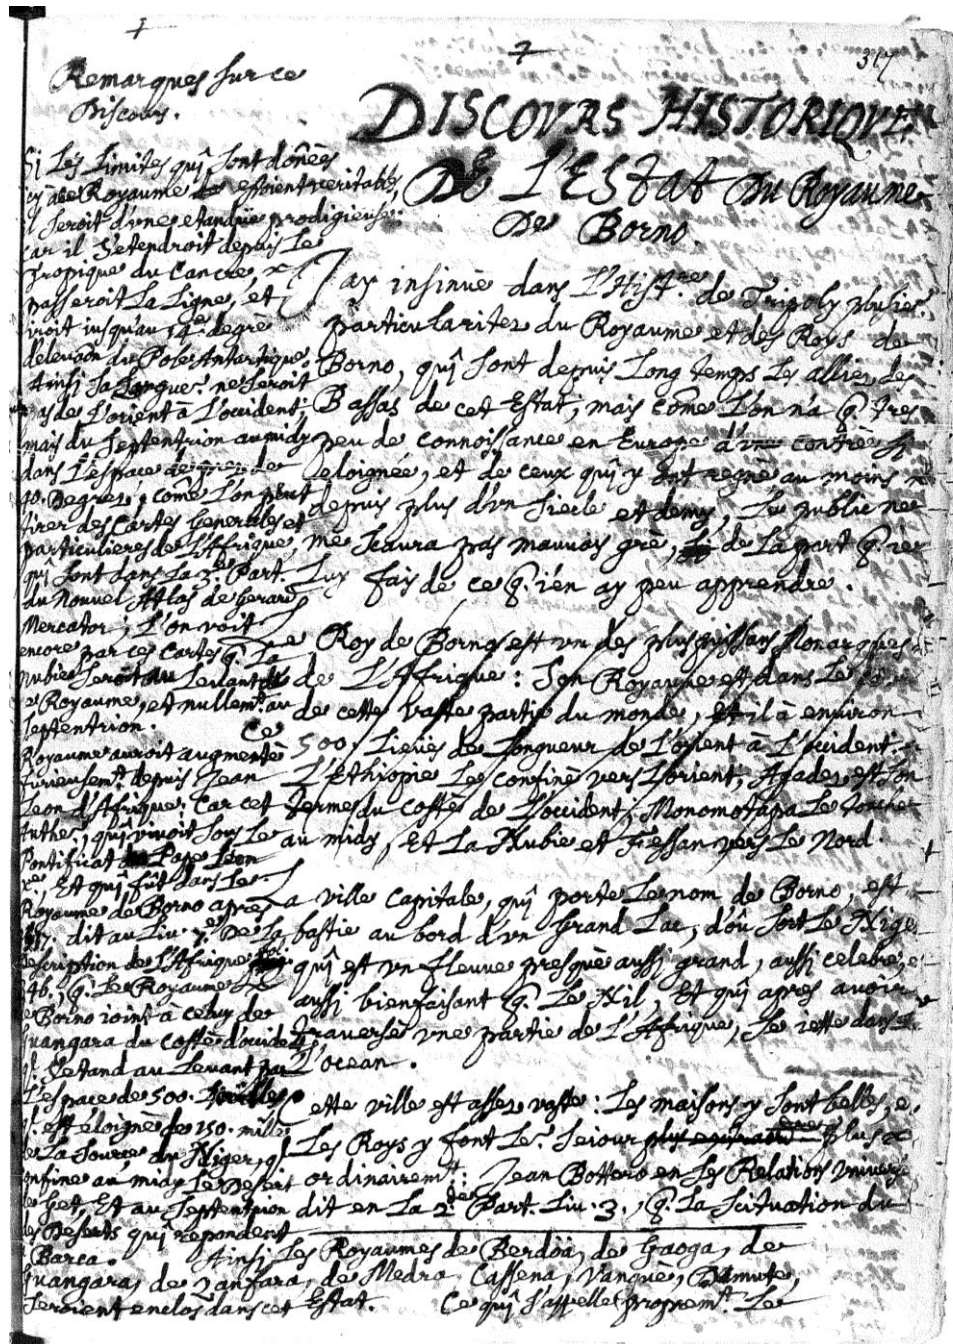 317
Remarques sur ce
Discours.
Si Les Limites quî sont donêes
icy à ce Royaume estoient veritables,
il seroit d'une etandüe prodigieuse:
car il s'etendroit depuis Le
Tropique du Cancre,
passeroit La Ligne, et
iroit iusqu'au degrè
d'elevãon du Pole Antartique,
Ainsi sa Longue.r ne seroit
pas de L'orient à L'occident;
mais du septentrion au midy
dans L'espace de
40. Degrez, cõme L'on peut
tirer des Cartes Generales et
particulieres de L'Afrique,
quî sont dans La 3.e Part.
du Nouvel Atlas de Gerard
Mercator; L'on voit
encore par ces Cartes q. La
Nubie seroit au Levant de
ce Royaume, et nullem.t au
septentrion. Ce
Royaume auroit augmentè
furieusem.t depuis Jean
Leon d'Afrique; Car cet
Authe.r, quî vivoit sous Le
Pontificat du Pape Leon
x.e, Et quî fût dans Le
Royaume de Borno apres
dit au Liv. 7.e De La
description de L'Afrique
346, q. Le Royaume de
Borno ioint à celuy de
Guangara du costè d'occident,
s'etand au Levant par
L'espace de 500. milles,
est éloignè de 150. milles
de La source du Niger, q.
confine au midy Le Desert
de Get, Et au septentrion
des Deserts quî repondent
à Barca. Ainsi Les Royaumes de Berdöa, de Gaoga, de
Guangara, de Zanfara, de Medra, Cassena, Vanguè, Damute,
seroient enclos dans cet Estat. Ce quî s'appelle proprem.t Le
DISCOURS HISTORIQUE
DE L'EStat Du Royaume
De Borno.
J'ay insinuè dans L'Hist.re de Tripoly plusie.rs
particularitez du Royaume et des Roys de
Borno, quî sont depuis Long temps Les alliez des
Bassas de cet Estat; mais cõme L'on n'a q. tres
peu de connoissance en Europe d'une contrèe sî
eloignée, et de ceux quî y ont regnè au moins
depuis plus d'un siecle et demy, Le public ne
me sçaura pas mauvais grè, de La part q. ie
Luy fais de ce q. i'en ay peu apprendre.
Le Roy de Borno est un des plus puissans Monarques
de L'Afrique: son Royaume est dans Le
de cette vaste partie du monde, Et il à environ
500. Lieües de Longueur de L'orient à L'occident.
L'Ethiopie Le confine vers L'orient, Agades est son
Terme du costè de L'occident; Monomotapa Le touche
au midy, Et La Nubie et Fessan vers Le Nord.
La ville Capitale, quî porte Le nom de Borno, est
bastie au bord d'un Grand Lac, d'où sort Le Niger
quî est un fleuve presque aussi grand, aussi celebre, et
aussi bienfaisant q. Le Nil, Et quî apres avoir
traversè une partie de L'Afrique, se iette dans
L'ocean.
Cette ville est assez vaste: Les maisons y sont belles, et
Les Roys y font Le.r seiour plus
ordinairem.t: Jean Bottero en ses Relations Univers.les
dit en La 2.de Part. Liv. 3., q. La scituation du